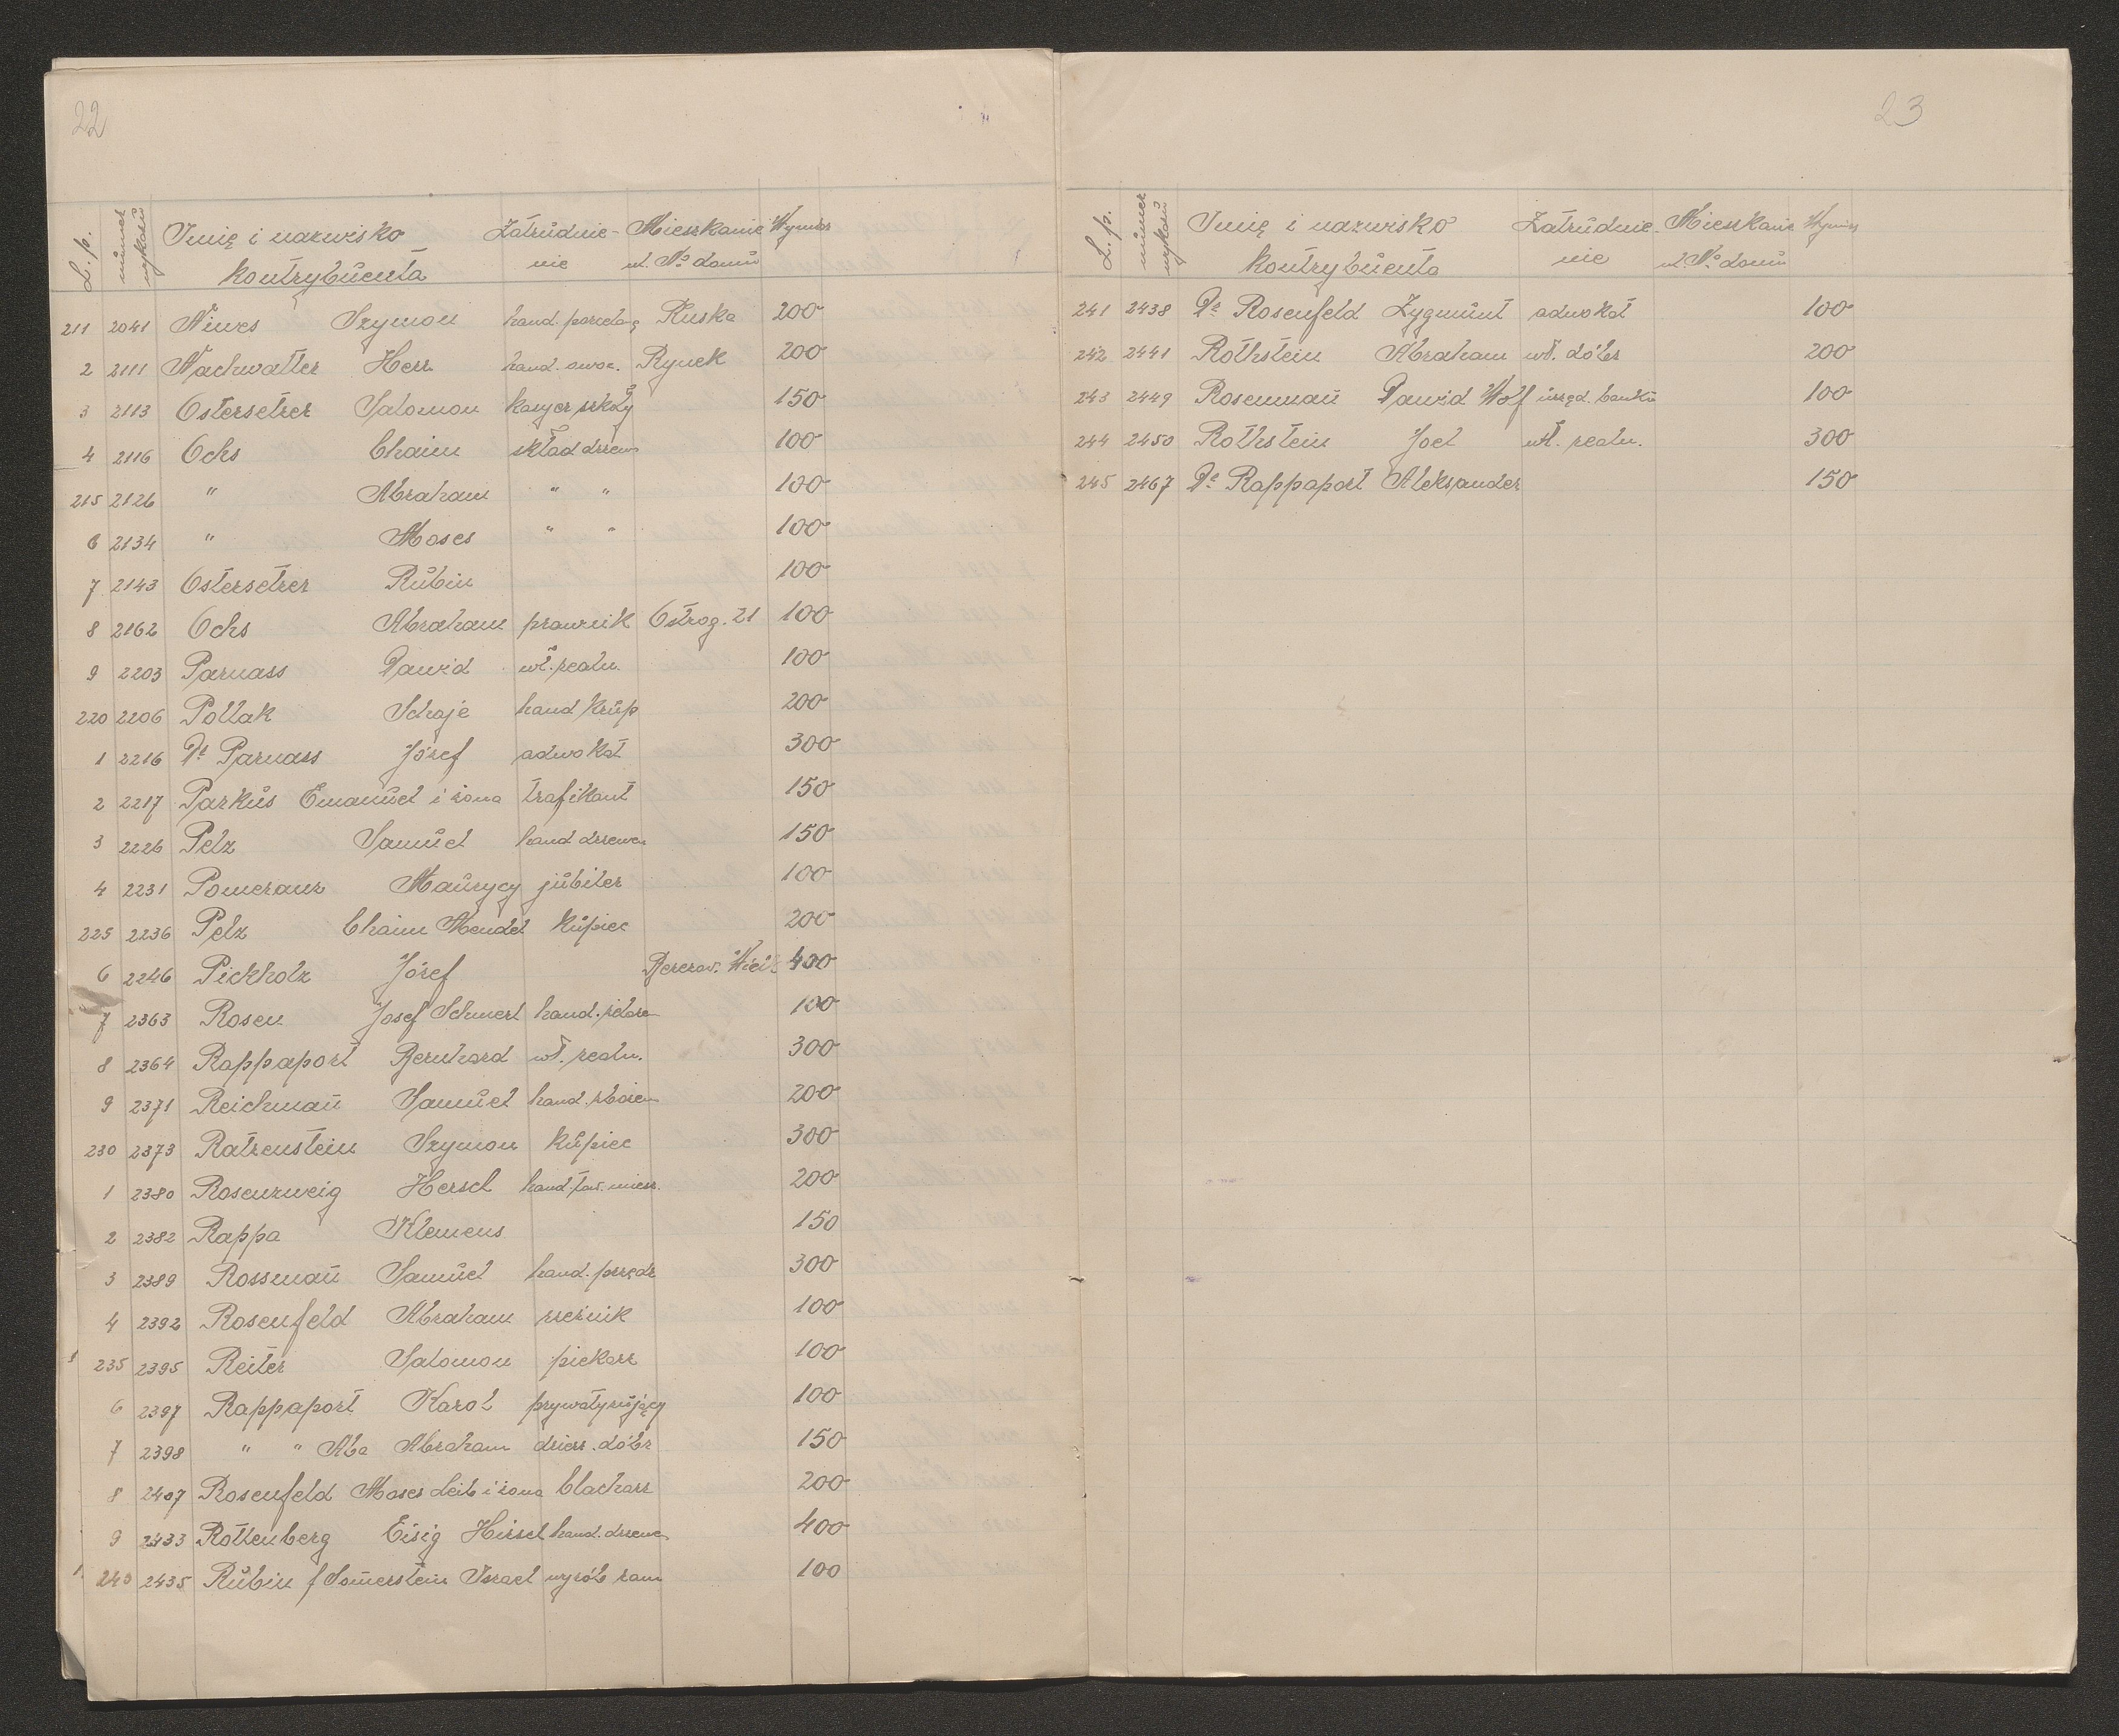 22
L. p. numer wykazu Imię i nazwisko Zatrudnie- Mieszkanie Wymiar
kontrybuenta nie ul. No domu
211 2041 Niwes Szymon hand. porcelaną Ruska 200
2 2111 Nachwalter Hersz hand. owoc. Rynek 200
3 2113 Ostersetzer Salomon kasyer szkoły 150
4 2116 Ochs Chaim skład drzewa 100
215 2126 " Abraham " " 100
6 2134 " Moses " " 100
7 2143 Ostersetzer Rubin 100
8 2162 Ochs Abraham prawnik Ostrog. 21 100
9 2203 Parnass Dawid wł. realn. 100
220 2206 Pollak Schaje hand krup 200
1 2216 Dr Parnass Józef adwokat 300
2 2217 Parkus Emanuel i żona trafikant 150
3 2226 Pelz Samuel hand drzewa 150
4 2231 Pomeranz Maurycy jubiler 100
225 2236 Pelz Chaim Mendel kupiec 200
6 2246 Pickholz Józef Berezow. 400
7 2363 Rosen Josef Schmerl hand. żelaza 100
8 2364 Rappaport Bernhard wł. realn. 300
9 2371 Reichman̄ Samuel hand. zbożem 200
230 2373 Ratzenstein Szymon kupiec 300
1 2380 Rosenzweig Hersch hand. tow. miesz. 200
2 2382 Rappa Klemens 150
3 2389 Rossman̄ Samuel hand. przędz 300
4 2392 Rosenfeld Abraham rzeźnik 100
235 2395 Reiter Salomon piekarz 100
6 2397 Rappaport Karol prywatyzujący 100
7 2398 " " Aba Abraham dzierż. dóbr 150
8 2407 Rosenfeld Moses Leib i żona blacharz 200
9 2433 Rottenberg Eisig Hirsch hand. drzewa 400
240 2435 Rubin f Som̄erstein Israel wyrób ram 100
23
L. p. numer wykazu Imię i nazwisko Zatrudnie- Mieszkanie Wymiar
kontrybuenta nie ul. No domu
241 2438 Dr Rosenfeld Zygmunt adwokat 100
242 2441 Rothstein Abraham wł. dóbr 200
243 2449 Rosenman̄ Dawid Wolf urzęd. banku 100
244 2450 Rothstein Joel wł. realn. 300
245 2467 Dr Rappaport Aleksander 150